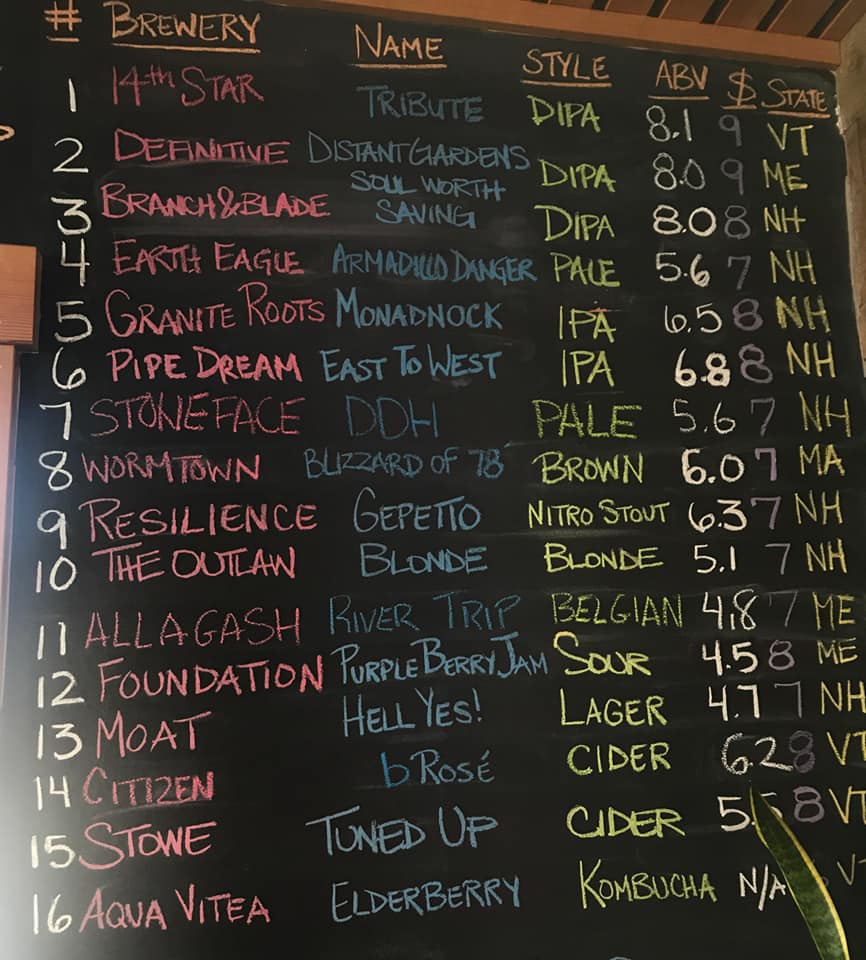 # BREWERY NAME STYLE ABV $ STATE
1 14th STAR TRIBUTE DIPA 8.1 9 VT
2 DEFINITIVE DISTANT GARDENS DIPA 8.0 9 ME
3 BRANCH&BLADE SOUL WORTH SAVING DIPA 8.0 8 NH
4 EARTH EAGLE ARMADILLO DANGER PALE 5.6 7 NH
5 GRANITE ROOTS MONADNOCK IPA 6.5 8 NH
6 PIPE DREAM EAST TO WEST IPA 6.8 8 NH
7 STONEFACE DDH PALE 5.6 7 NH
8 WORMTOWN BLIZZARD OF '78 BROWN 6.0 7 MA
9 RESILIENCE GEPETTO NITRO STOUT 6.3 7 NH
10 THE OUTLAW BLONDE BLONDE 5.1 7 NH
11 ALLAGASH RIVER TRIP BELGIAN 4.8 7 ME
12 FOUNDATION PURPLE BERRY JAM SOUR 4.5 8 ME
13 MOAT HELL YES! LAGER 4.7 7 NH
14 CITIZEN bROSÉ CIDER 6.2 8 VT
15 STOWE TUNED UP CIDER 8 VT
16 AQUA VITEA ELDERBERRY KOMBUCHA N/A